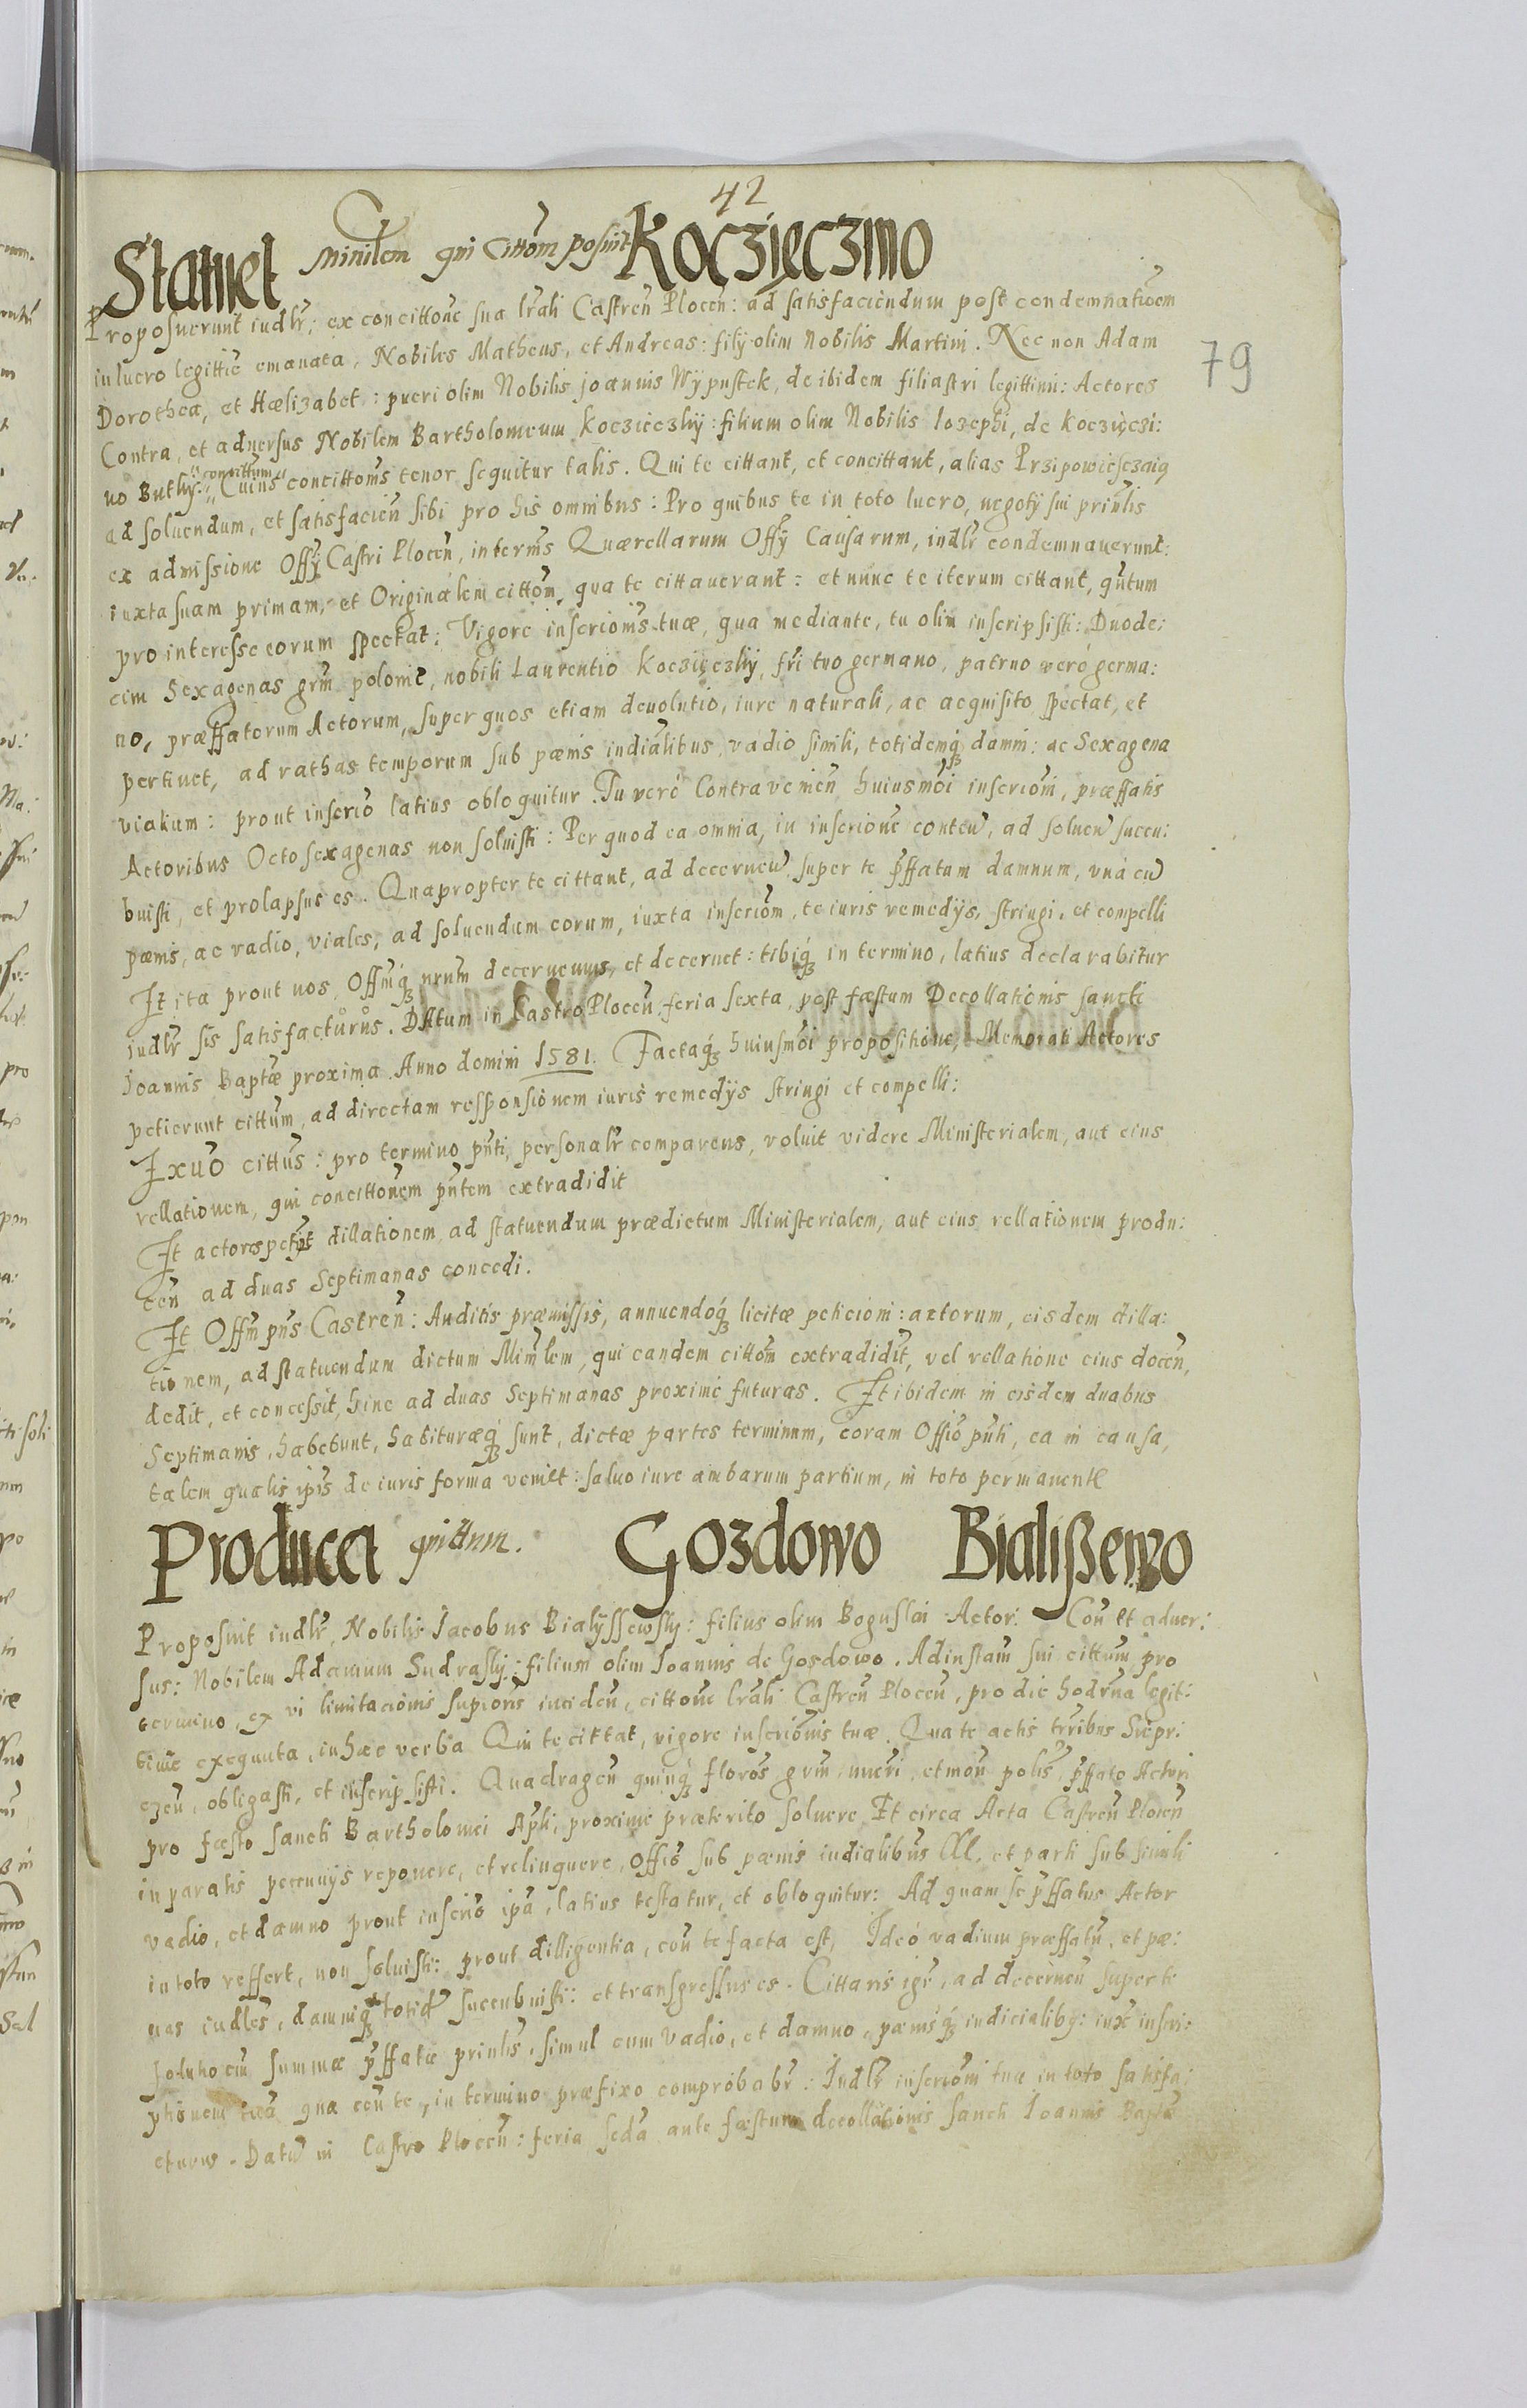 42
Statuet Minilem qui Cittom posuit Koczięczino
79
Proposuerunt iudlr, ex concittone sua lrali Castren Plocen: ad satisfaciendum post condemnatioem
in lucro legittie emanata, Nobiles Matheus, et Andreas: filij olim Nobilis Martini. Nec non Adam
Dorothea, et Hælizabet: pueri olim Nobilis Joannis Wypustek, de ibidem filiastri legittimi: Actores
Contra, et aduersus Nobilem Bartholomeum Koczieczky: filium olim Nobilis Iozephi, de Koczięczi:
no Buthy: concittum Cuius concittoms tenor sequitur talis. Qui te cittant, et concittant, alias Przipowiesczaią
ad soluendum, et satisfacien sibi pro his omnibus: Pro quibus te in toto lucro, negotij sui prinlis
ex admissione Offy Castri Plocen, in terms Quærellarum Offy Causarum, indlr condemnauerunt:
iuxta suam primam, et Originalem cittom, qua te cittauerant: et nunc te iterum cittant, qntum
pro interesse eorum spectat: Vigore inscrioms tuæ, qua mediante, tu olim inscripsisti: Duode:
cim Sexagenas grm polonic, nobili Laurentio Koczięczky, fri tuo germano, patruo veró germa:
no, præffatorum Actorum, super quos etiam deuolutio, iure naturali, ac acquisito spectat, et
pertinet, ad rathas temporum sub pæenis indialibus, vadio simili, totidemq damni: ac Sexagena
vialium: prout inscrio latius obloquitur. Tu veró Contra venien huiusmoi inscrioni, præffatis
Actoribus Octo sexagenas non soluisti: Per quod ea omnia, in inscrione conten, ad soluen succu:
buisti, et prolapsus es. Quapropter te cittant, ad decernen super te pffatam damnum, vná cu
pæenis, ac vadio, viales, ad soluendum eorum, iuxta inscriom, te iuris remedys, stringi, et compelli
It ita prout nos, Offmq nrum decernemus, et decernet: tibiq in termino, latius declarabitur
iudlr sis satisfacturus. Datum in Castro Plocen feria sexta, post fæstum Decollationis sancti
Joannis Baptæ proxima. Anno domini 1581. Factaq huiusmoi propositione, Memorati Actores
petierunt cittum, ad directam responsionem iuris remedys stringi et compelli:
Ex uo cittus: pro termino pnti, personalr comparens, voluit videre Ministerialem, aut eius
rellationem, qui concittonem pntem extradidit
Et actores petijt dillationem ad statuendum prædictum Ministerialem, aut eius rellationem produ:
cen ad duas Septimanas concedi.
Et Offm pns Castren: Auditis præmissis, annuendoq licitæ peticioni: actorum, eisdem dilla:
tionem, ad statuendum dictum Mimlem, qui eandem cittom extradidit, vel rellatione eius docen,
dedit, et concessit, hinc ad duas Septimanas proximé futuras. Et ibidem in eisdem duabus
Septimanis, habebunt, habituræq sunt, dictæ partes terminum, coram Offio pnti, ea in causa,
talem qualis ipis de iuris forma veniet: saluo iure ambarum partium, in toto permanente
Producet quittum. Gozdowo Bialißewo
Proposuit iudlr, Nobilis Jacobus Bialyssewsky: filius olim Boguslai Actor: Con et aduer:
sus: Nobilem Adamum Sudrasky: filium olim Joannis de Gosdowo. Ad instam sui cittum pro
termino, ex vi limitacionis supioris inciden, cittone lrali Castren Plocen, pro die hodrna legit:
time exequuta, in hæc verba Qui te cittat, vigore inscrionis tuæ. Qua te actis trribus Siepr:
czen, obligasti, et inscripsisti. Quadragen quinq floros grm nueri, et mon polis, pffato Actori
pro fæsto Sancti Bartholomei Apli, proximé præterito soluere. Et circa Acta Castren Plocen
in paratis pecunijs reponere, et relinquere, Offio sub pæenis iudialibus XIV, et parti sub simili
vadio, et damno prout inscrio ipa, latius testatur, et obloquitur: Ad quam se pffatus Actor
in toto reffert, non soluisti: prout dilligentia, con te facta est, Ideó vadium præffatu, et pæ:
nas iudles, damniq totid succubuisti: et transgressus es. Cittaris igr, ad decernen super te
solutioem summæ pffatæ prinlis, simul cum vadio, et damno, pænisq iudicialibq: iux inscri:
ptionem tuá qua con te, in termino præfixo comprobabr: Iudlr inscrioni tuæ in toto satisfa:
cturus. Datu in Castro Plocen: feria seda ante fæstum decollationis Sancti Joannis Baptæ